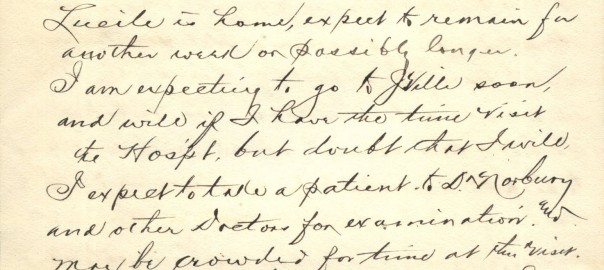 Lucile is home, expect to remain for
another week or possibly longer.
I am expecting to go to J'Ville soon,
and will if I have the time Visit
the Hospt, but doubt that I will,
I expect to take a patient to Dr Norbury
and other Doctors for examination. and
may be crowded for time at this visit.